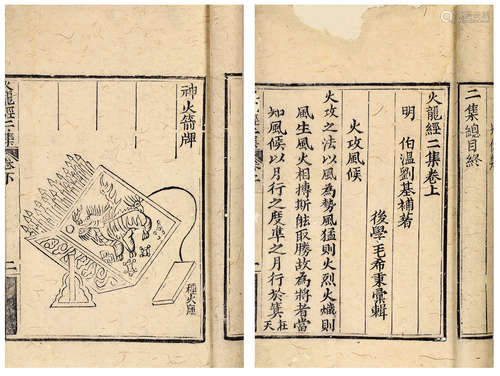 二集總目終
火龍經二集卷上
明 伯溫劉基補著
後學毛希秉彙輯
火攻風候
火攻之法以風為勢風猛則火烈火熾則
風生風火相搏斯能取勝故為將者當
知風候以月行之度準之月行於箕天柱
神火箭牌
種火匣
火龍經二集 卷下